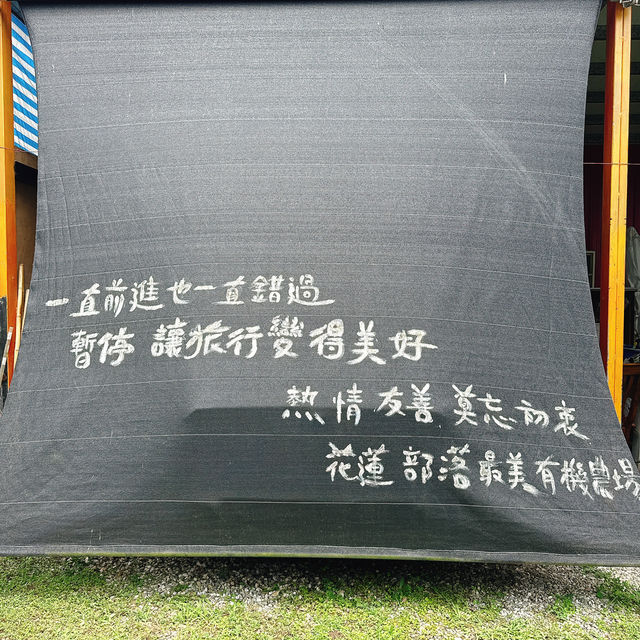 一直前進也一直錯過
暫停 讓旅行變得美好
熱情友善 莫忘初衷
花蓮部落最美有機農場